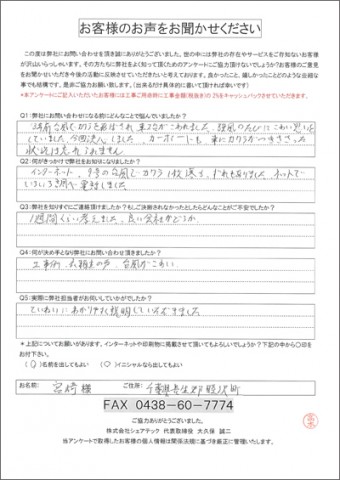 お客様のお声をお聞かせください
この度は弊社にお問い合わせを頂き誠にありがとうございました。世の中には弊社の存在やサービスをご存知ないお客様
が沢山いらっしゃいます。その方たちに弊社をよく知って頂くためのアンケートにご協力頂けないでしょうか?お客様のご意
見をお聞かせいただき今後の活動に反映させていただきたいと考えております。良かったこと、嬉しかったことどのような些細な
事でも結構です。是非ご協力お願い致します。(出来るだけ具体的に書いて頂ければ幸いです)
★本アンケートにご記入いただいたお客様には工事ご用命時に工事金額(税抜き)の2%をキャッシュバックさせていただきます。
Q1:弊社にお問い合わせになる前にどんなことで悩んでいましたか?
台風でカワラが
Q2:何がきっかけで弊社をお知りになりましたか?
インターネット、台風でカワラ1枚
Q3:弊社を知りすぐにご連絡頂けましたか?もしご決断されなかったとしたらどんなことがご不安でしたか?
1週間くらい考えました。良い会社かどうか
Q4:何が決め手となり弊社にお問い合わせ頂きましたか?
工事例、お客様の声、台風がこわい
Q5:実際に弊社担当者がお伺いしていかがでしたか?
ていねいにわかりやすく説明していただきました
★上記についてお願いがあります。インターネットや印刷物に掲載させて頂いてもよろしいでしょうか?下記の中から〇印を
お付下さい。
( )名前を出してもよい (〇)イニシャルなら出してもよい
お名前: 宮崎 様 ご住所: 千葉県長生郡睦沢町
FAX 0438-60-7774
ご協力ありがとうございました。
株式会社シェアテック 代表取締役 大久保 誠二
当アンケートで取得したお客様の個人情報は関係法規に基づき厳正に管理いたします。